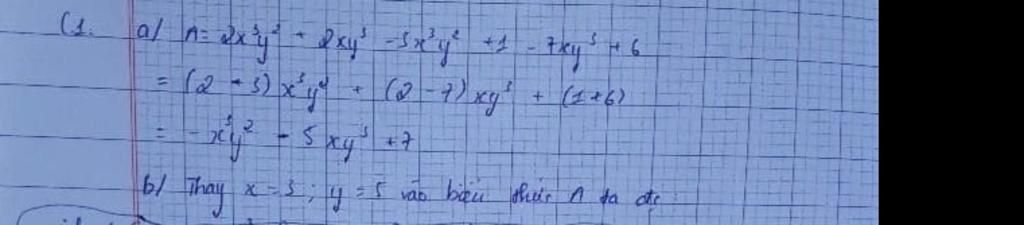 C1. a/ A = 2x³y² + 2xy³ - 3x³y² + 1 - 7xy³ + 6
= (2 - 3) x³y² + (2 - 7) xy³ + (1+6)
= - x³y² - 5xy³ + 7
b/ Thay x = 3 ; y = 5 vào biểu thức A ta đc